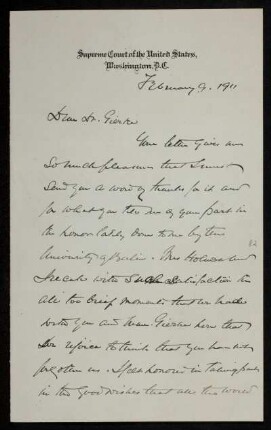 Supreme Court of the United States,
Washington, D.C.
February 9. 1911
Dear Dr. Gierke
Your letter gives me
so much pleasure that I must
send you a word of thanks for it and
for what you tell me of your part in
the honor lately done to me by the
University of Berlin. Mrs Holmes and
I recall with such satisfaction the
all too brief moments that we had
with you and Frau Gierke here that
we rejoice to think that you have not
forgotten us. I feel honored in taking part
in the good wishes that all the world